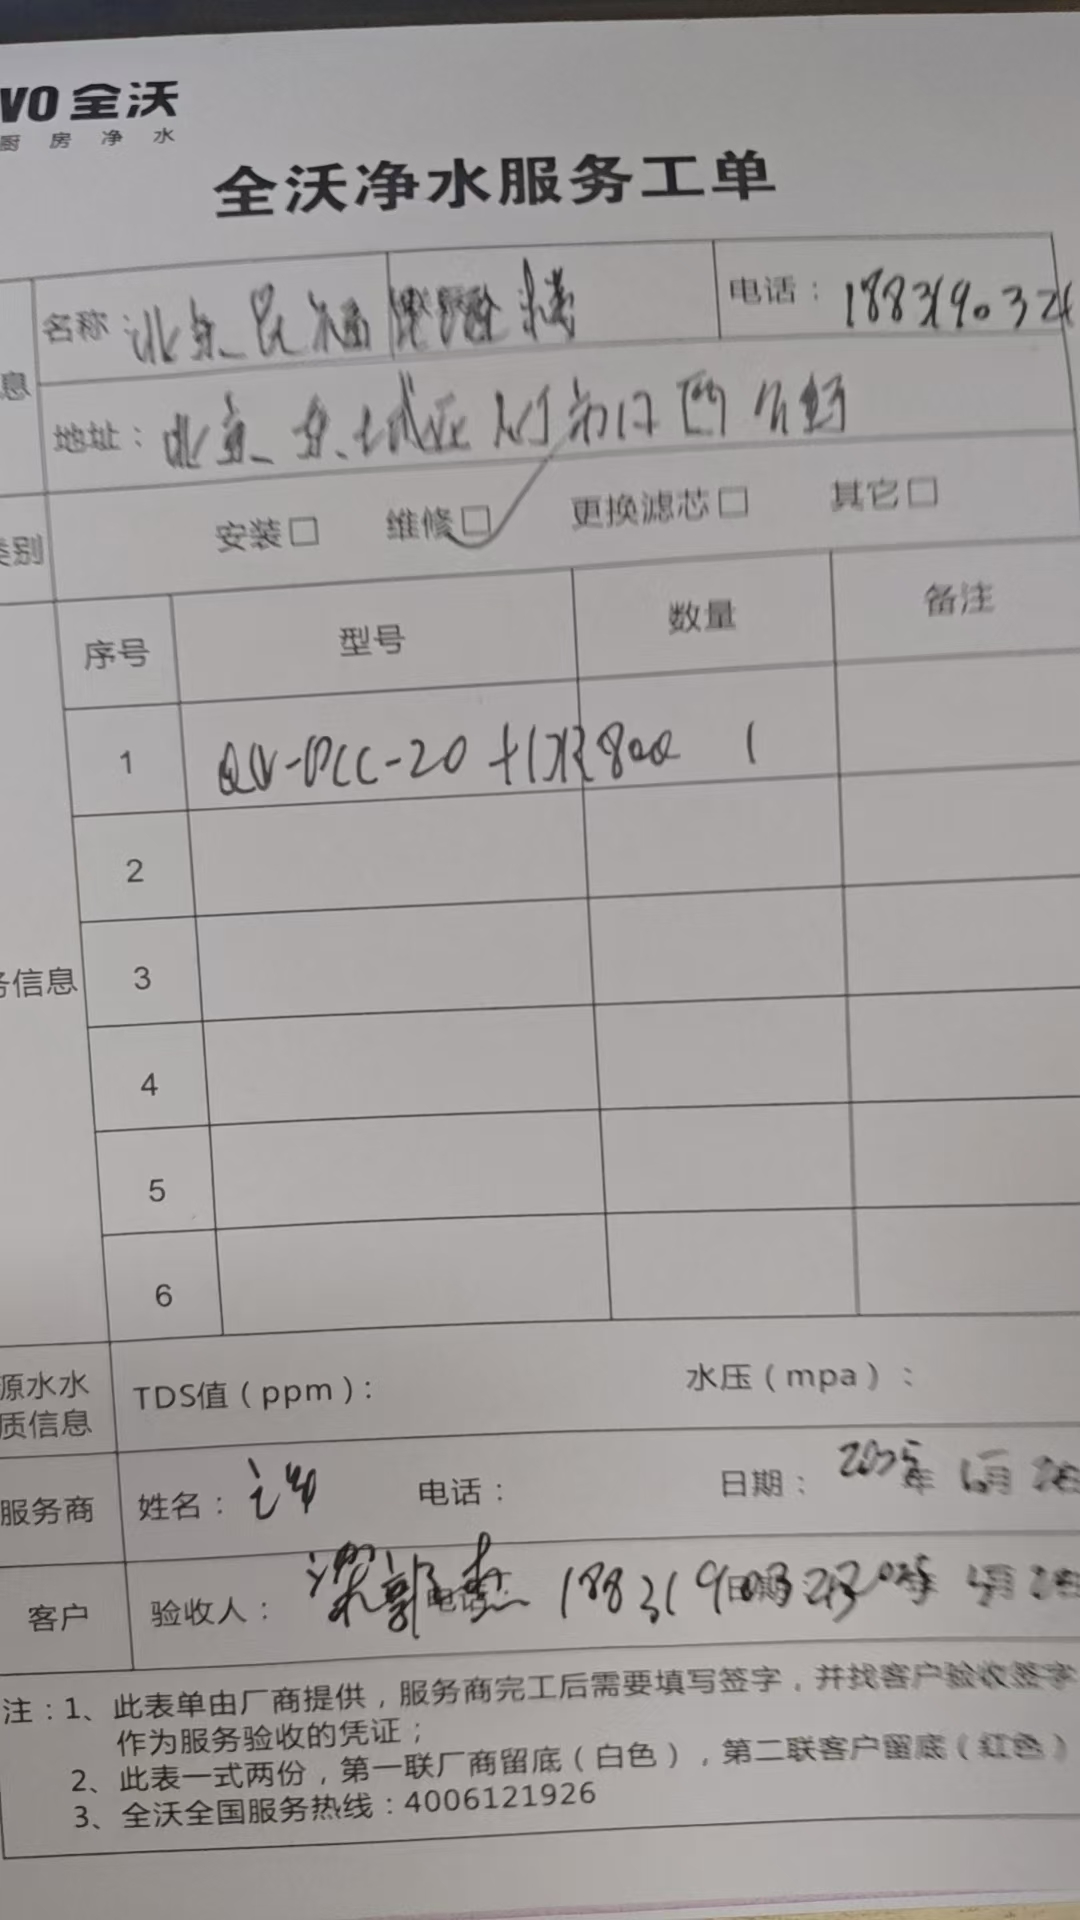 VO 全沃
厨房净水
全沃净水服务工单
息
名称 北京 福 楼
电话：188319032
地址：北京东城区 门 西
类别
安装□ 维修□✓ 更换滤芯□ 其它□
序号 型号 数量 备注
1 QW-PCC-20 800 1
2
务信息 3
4
5
6
源水水
质信息
TDS值（ppm）： 水压（mpa）：
服务商 姓名： 电话： 日期：2025年 月
客户 验收人：梁 电话： 1883190323 日期 年 月
注：1、此表单由厂商提供，服务商完工后需要填写签字，并找客户验收签字
作为服务验收的凭证；
2、此表一式两份，第一联厂商留底（白色），第二联客户留底（红色）
3、全沃全国服务热线：4006121926